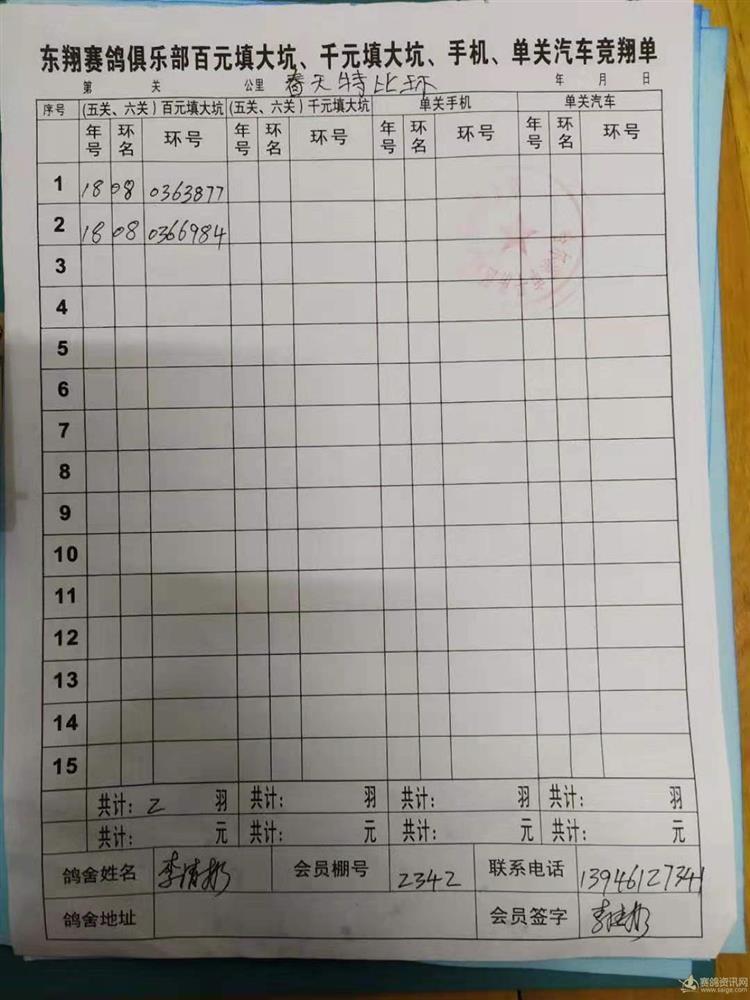 东翔赛鸽俱乐部百元填大坑、千元填大坑、手机、单关汽车竞翔单
第 关 公里 春天特比环 年 月 日
序号 (五关、六关)百元填大坑 (五关、六关)千元填大坑 单关手机 单关汽车
年号 环名 环号 年号 环名 环号 年号 环名 环号 年号 环名 环号
1 18 08 0363877
2 18 08 0366984
3
4
5
6
7
8
9
10
11
12
13
14
15
共计: 2 羽 共计: 羽 共计: 羽 共计: 羽
共计: 元 共计: 元 共计: 元 共计: 元
鸽舍姓名 李清彬 会员棚号 2342 联系电话 13946127341
鸽舍地址 会员签字
赛鸽资讯网
www.saige.com